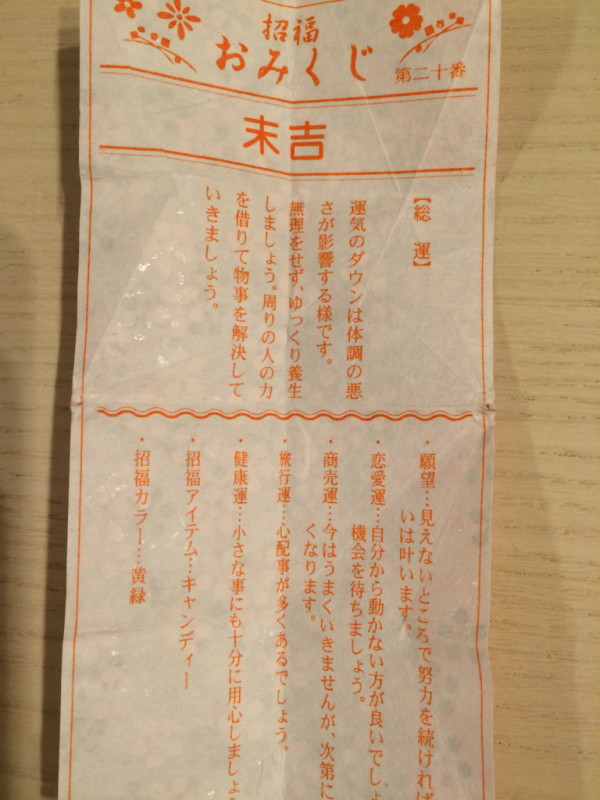 招福
おみくじ
第二十番
末吉
【総運】
運気のダウンは体調の悪
さが影響する様です。
無理をせず、ゆっくり養生
しましょう。周りの人の力
を借りて物事を解決して
いきましょう。
・願望…見えないところで努力を続ければ
いは叶います。
・恋愛運…自分から動かない方が良いでしょ
機会を待ちましょう。
・商売運…今はうまくいきませんが、次第に
くなります。
・旅行運…心配事が多くあるでしょう。
・健康運…小さな事にも十分に用心しましょ
・招福アイテム…キャンディー
・招福カラー…黄緑